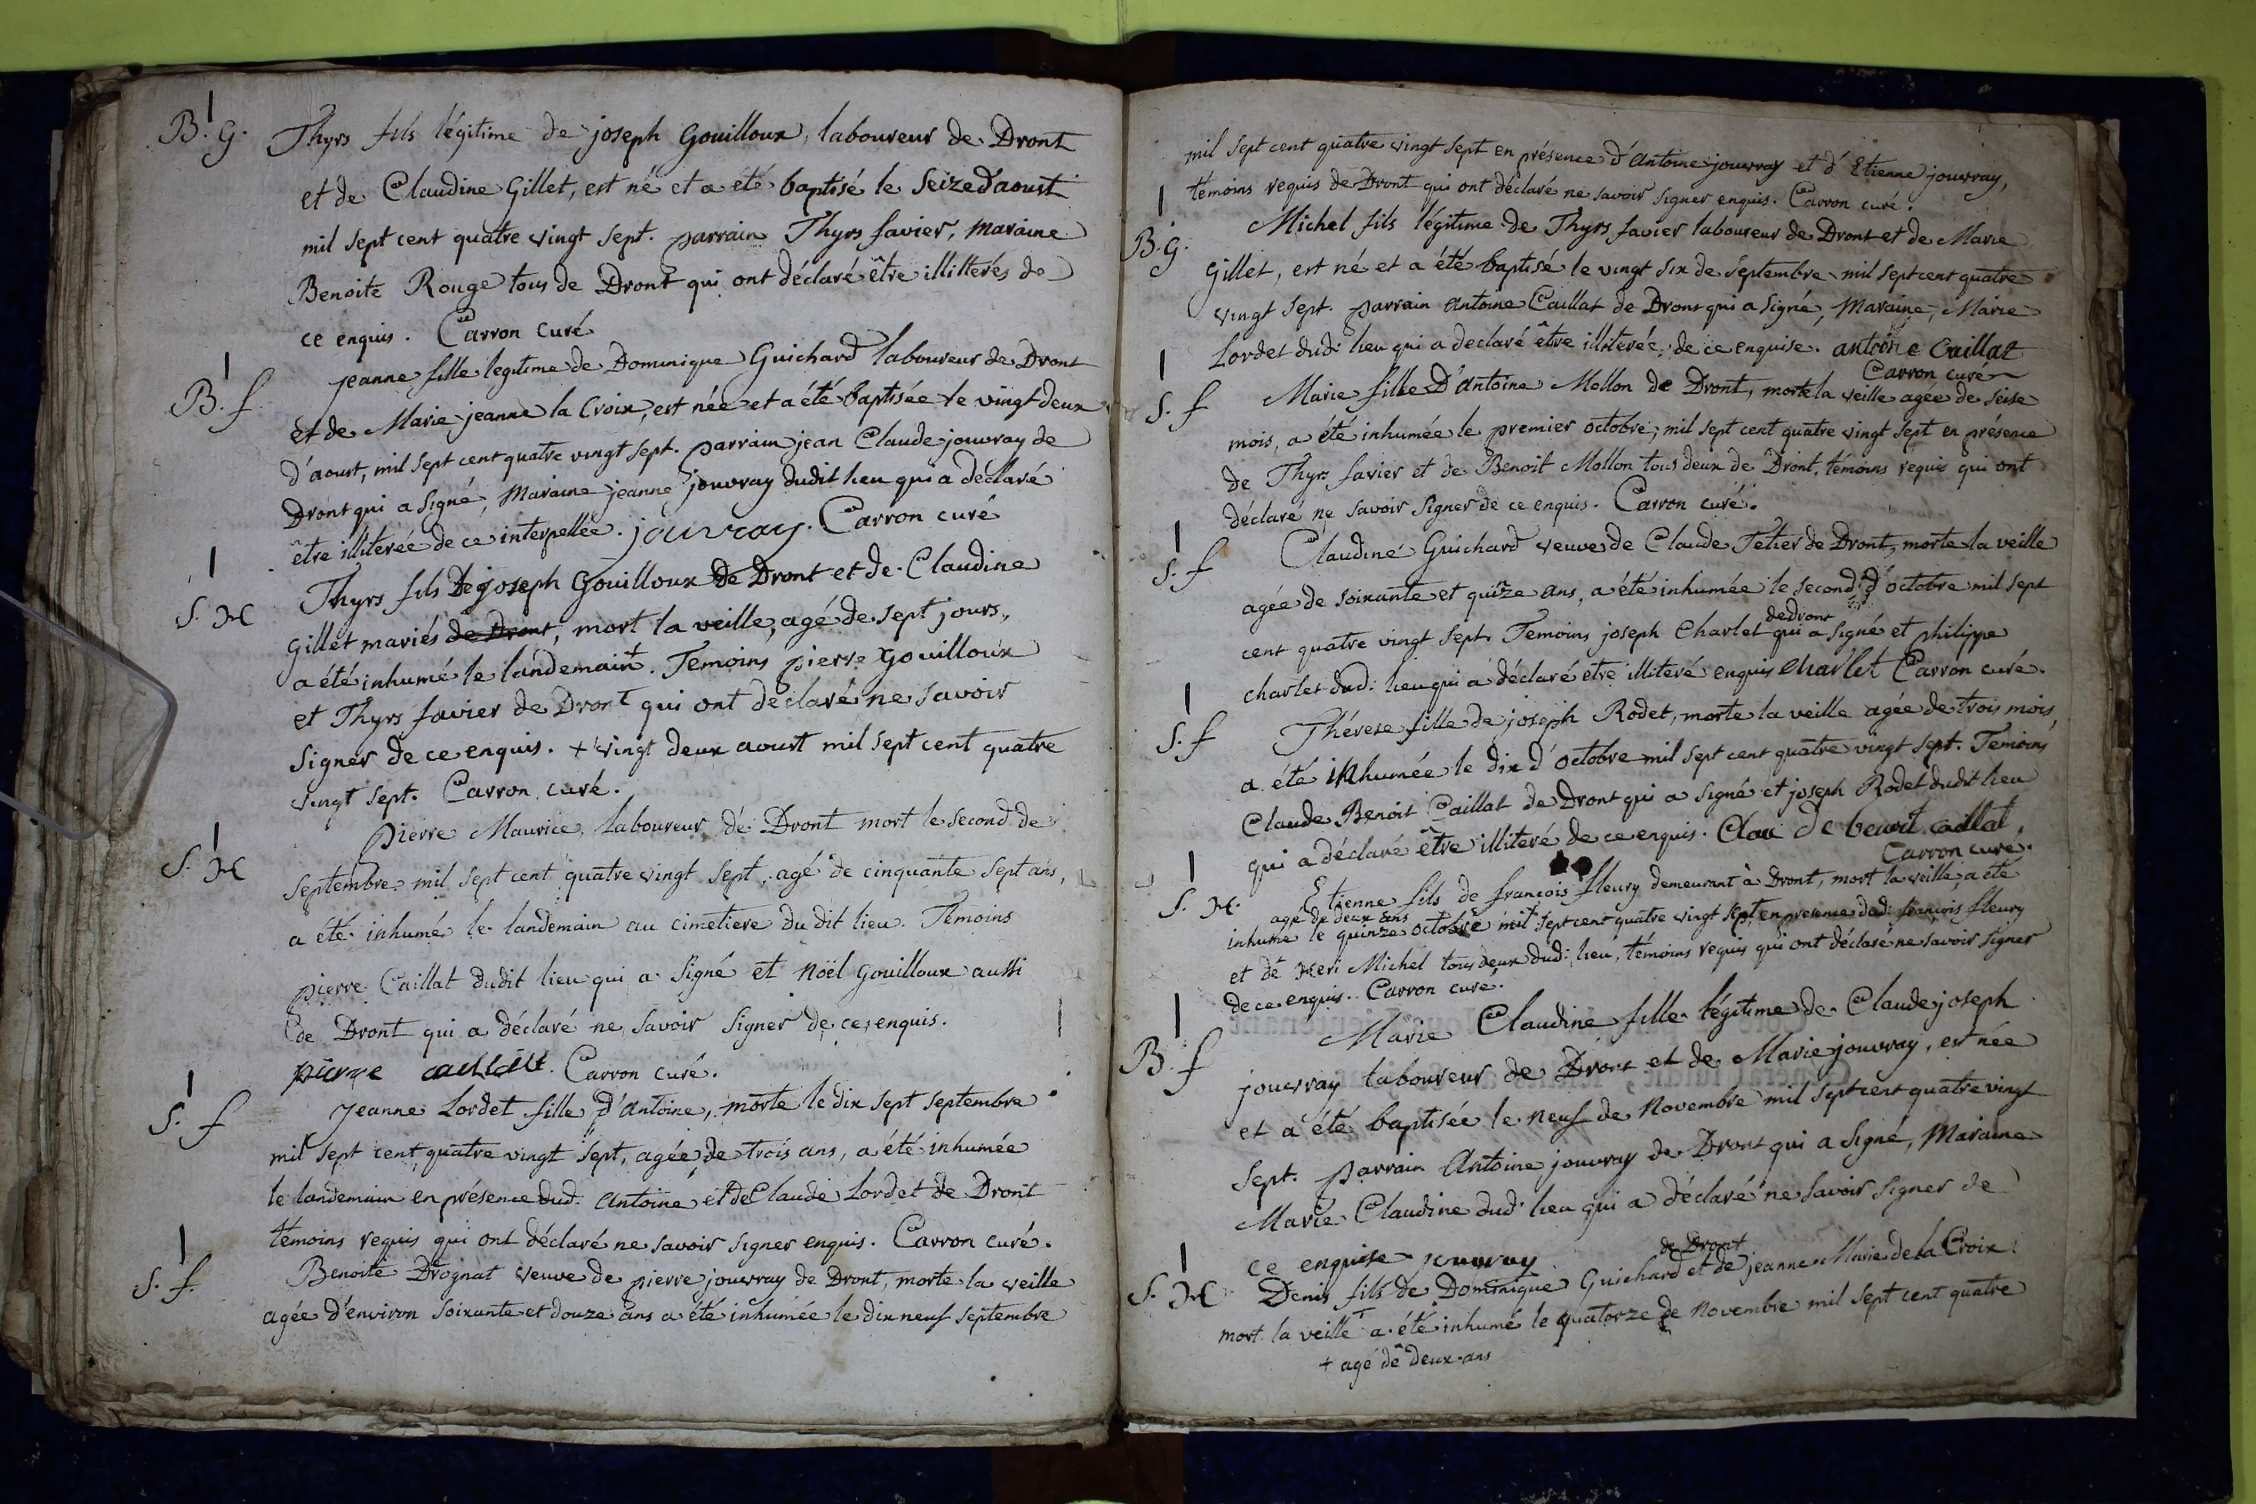 B. G. Thyrs fils légitime de joseph Gouilloux, laboureur de Dront
et de Claudine Gillet, est né et a été baptisé le Seize d'aoust
mil sept cent quatre vingt sept. parrain Thyrs favier, maraine
Benoite Rouge tous de Dront qui ont déclaré être illitterés de
ce enquis. Carron curé
B. f. jeanne fille legitime de Dominique Guichard laboureur de Dront
et de Marie jeanne la Croix, est née et a été baptisée le vingt deux
d'aoust, mil sept cent quatre vingt sept. parrain jean Claude jouvray de
Dront qui a signé, Maraine jeanne jouvray dudit lieu qui a déclaré
être illiterée de ce interpellée. jouvray. Carron curé
S. H Thyrs fils De joseph Gouilloux de Dront et de Claudine
Gillet mariés de Dront, mort la veille, agé de sept jours,
a été inhumé le landemain +. Temoins pierre Gouilloux
et Thyrs favier de Dront qui ont déclaré ne savoir
signer de ce enquis. + vingt deux aoust mil sept cent quatre
vingt sept. Carron curé.
S. H pierre Maurice, laboureur de Dront mort le second de
septembre mil sept cent quatre vingt sept, agé de cinquante sept ans,
a été inhumé le landemain au cimetiere du dit lieu. Témoins
pierre Caillat dudit lieu qui a signé et Noël Gouilloux aussi
de Dront qui a déclaré ne savoir signer de ce enquis.
pierre caillat. Carron curé.
S. f Jeanne Lordet fille d'Antoine, morte le dix sept septembre
mil sept cent quatre vingt sept, agée de trois ans, a été inhumée
le landemain en présence dud. Antoine et de Claude Lordet de Dront
témoins requis qui ont déclaré ne savoir signer enquis. Carron curé.
S. f. Benoite Drognat veuve de pierre jouvray de Dront, morte la veille
agée d'environ soixante et douze ans a été inhumée le dix neuf septembre
mil sept cent quatre vingt sept en présence d'Antoine jouvray et d'Etienne jouvray,
témoins requis de Dront qui ont déclaré ne savoir signer enquis. Carron curé.
B. G. Michel fils légitime de Thyrs favier laboureur de Dront et de Marie
Gillet, est né et a été baptisé le vingt six de septembre mil sept cent quatre
vingt sept. parrain Antoine Caillat de Dront qui a signé, Maraine, Marie
Lordet dud: lieu qui a declaré être illiterée, de ce enquise. antoine Caillat
Carron curé
S. f Marie fille D'antoine Mollon de Dront, morte la veille agée de seise
mois, a été inhumée le premier octobre, mil sept cent quatre vingt sept en présence
de Thyrs favier et de Benoit Mollon tous deux de Dront, témoins requis qui ont
déclaré ne savoir signer de ce enquis. Carron curé.
S. f Claudine Guichard veuve de Claude Tetier de Dront, morte la veille
agée de soixante et quize ans, a été inhumée le second d'octobre mil sept
de dront
cent quatre vingt sept. Temoins joseph Charlet qui a signé et philippe
charlet dud: lieu qui a déclaré etre illiteré enquis Charlet Carron curé.
S. f Thérese fille de joseph Rodet, morte la veille agée de trois mois,
a été inhumée le dix d'octobre mil sept cent quatre vingt sept. Temoins
Claude Benoit Caillat de Dront qui a signé et joseph Rodet dudit lieu
qui a déclaré être illiteré de ce enquis. Clau de benoit caillat.
Carron curé.
S. H. Etienne fils de françois fleury demeurant à Dront, mort la veille, a été
agé de deux ans
inhumé le quinze octobre mil sept cent quatre vingt sept en presence dud: françois fleury
et de Heri Michel tous deux dud: lieu, témoins requis qui ont déclaré ne savoir signer
de ce enquis. Carron curé.
B. f Marie Claudine fille légitime de Claude joseph
jouvray laboureur de Dront et de Marie jouvray, est née
et a été baptisée le neuf de Novembre mil sept cent quatre vingt
sept. parrain Antoine jouvray de Dront qui a signé, Maraine
Marie Claudine dud. lieu qui a déclaré ne savoir signer de
ce enquise jouvray
de Dront
S. H Denis fils de Dominique Guichard et de jeanne Marie de la Croix
mort la veille + a été inhumé le quatorze de Novembre mil sept cent quatre
+ agé de deux ans